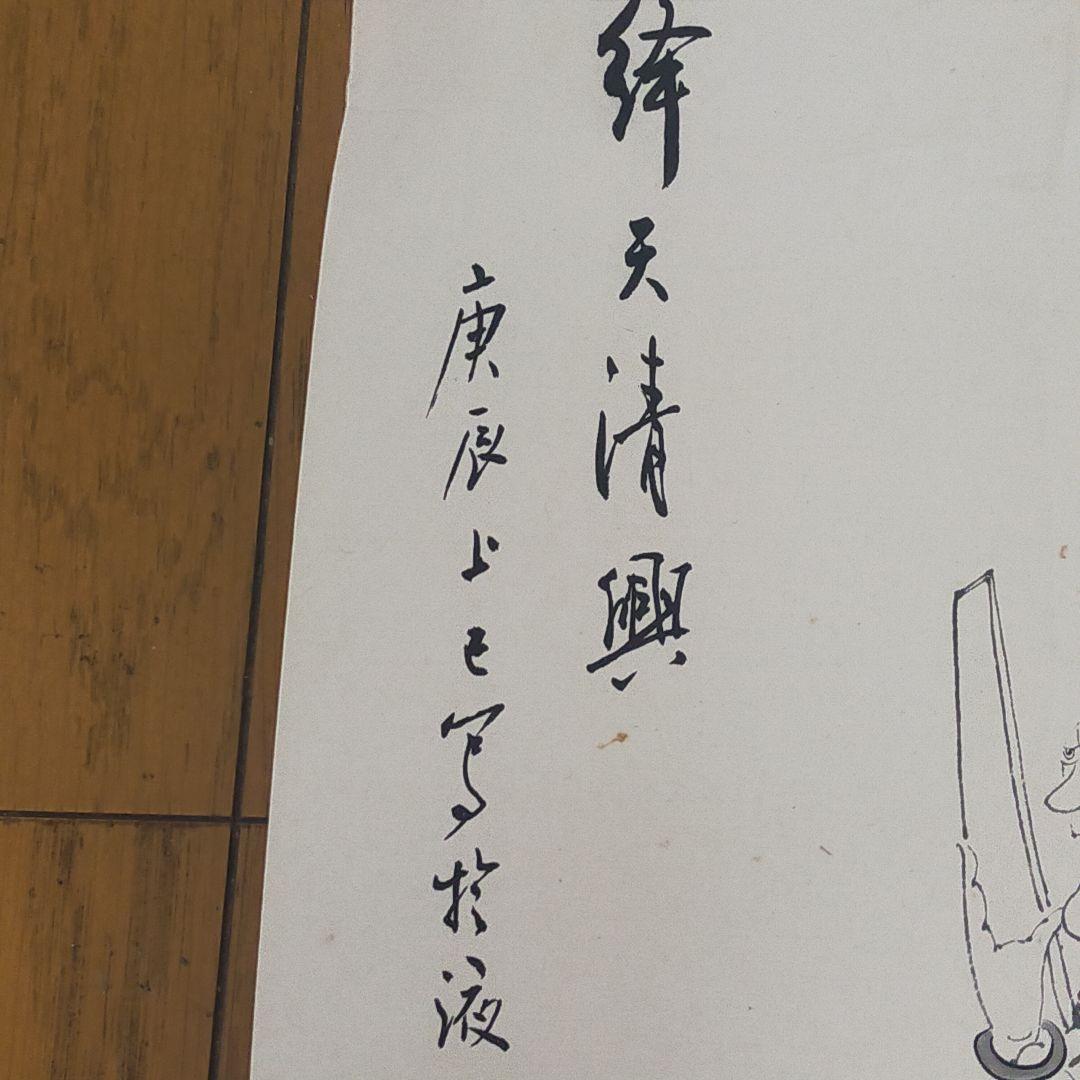 绛天清興
庚辰上巳寫於液